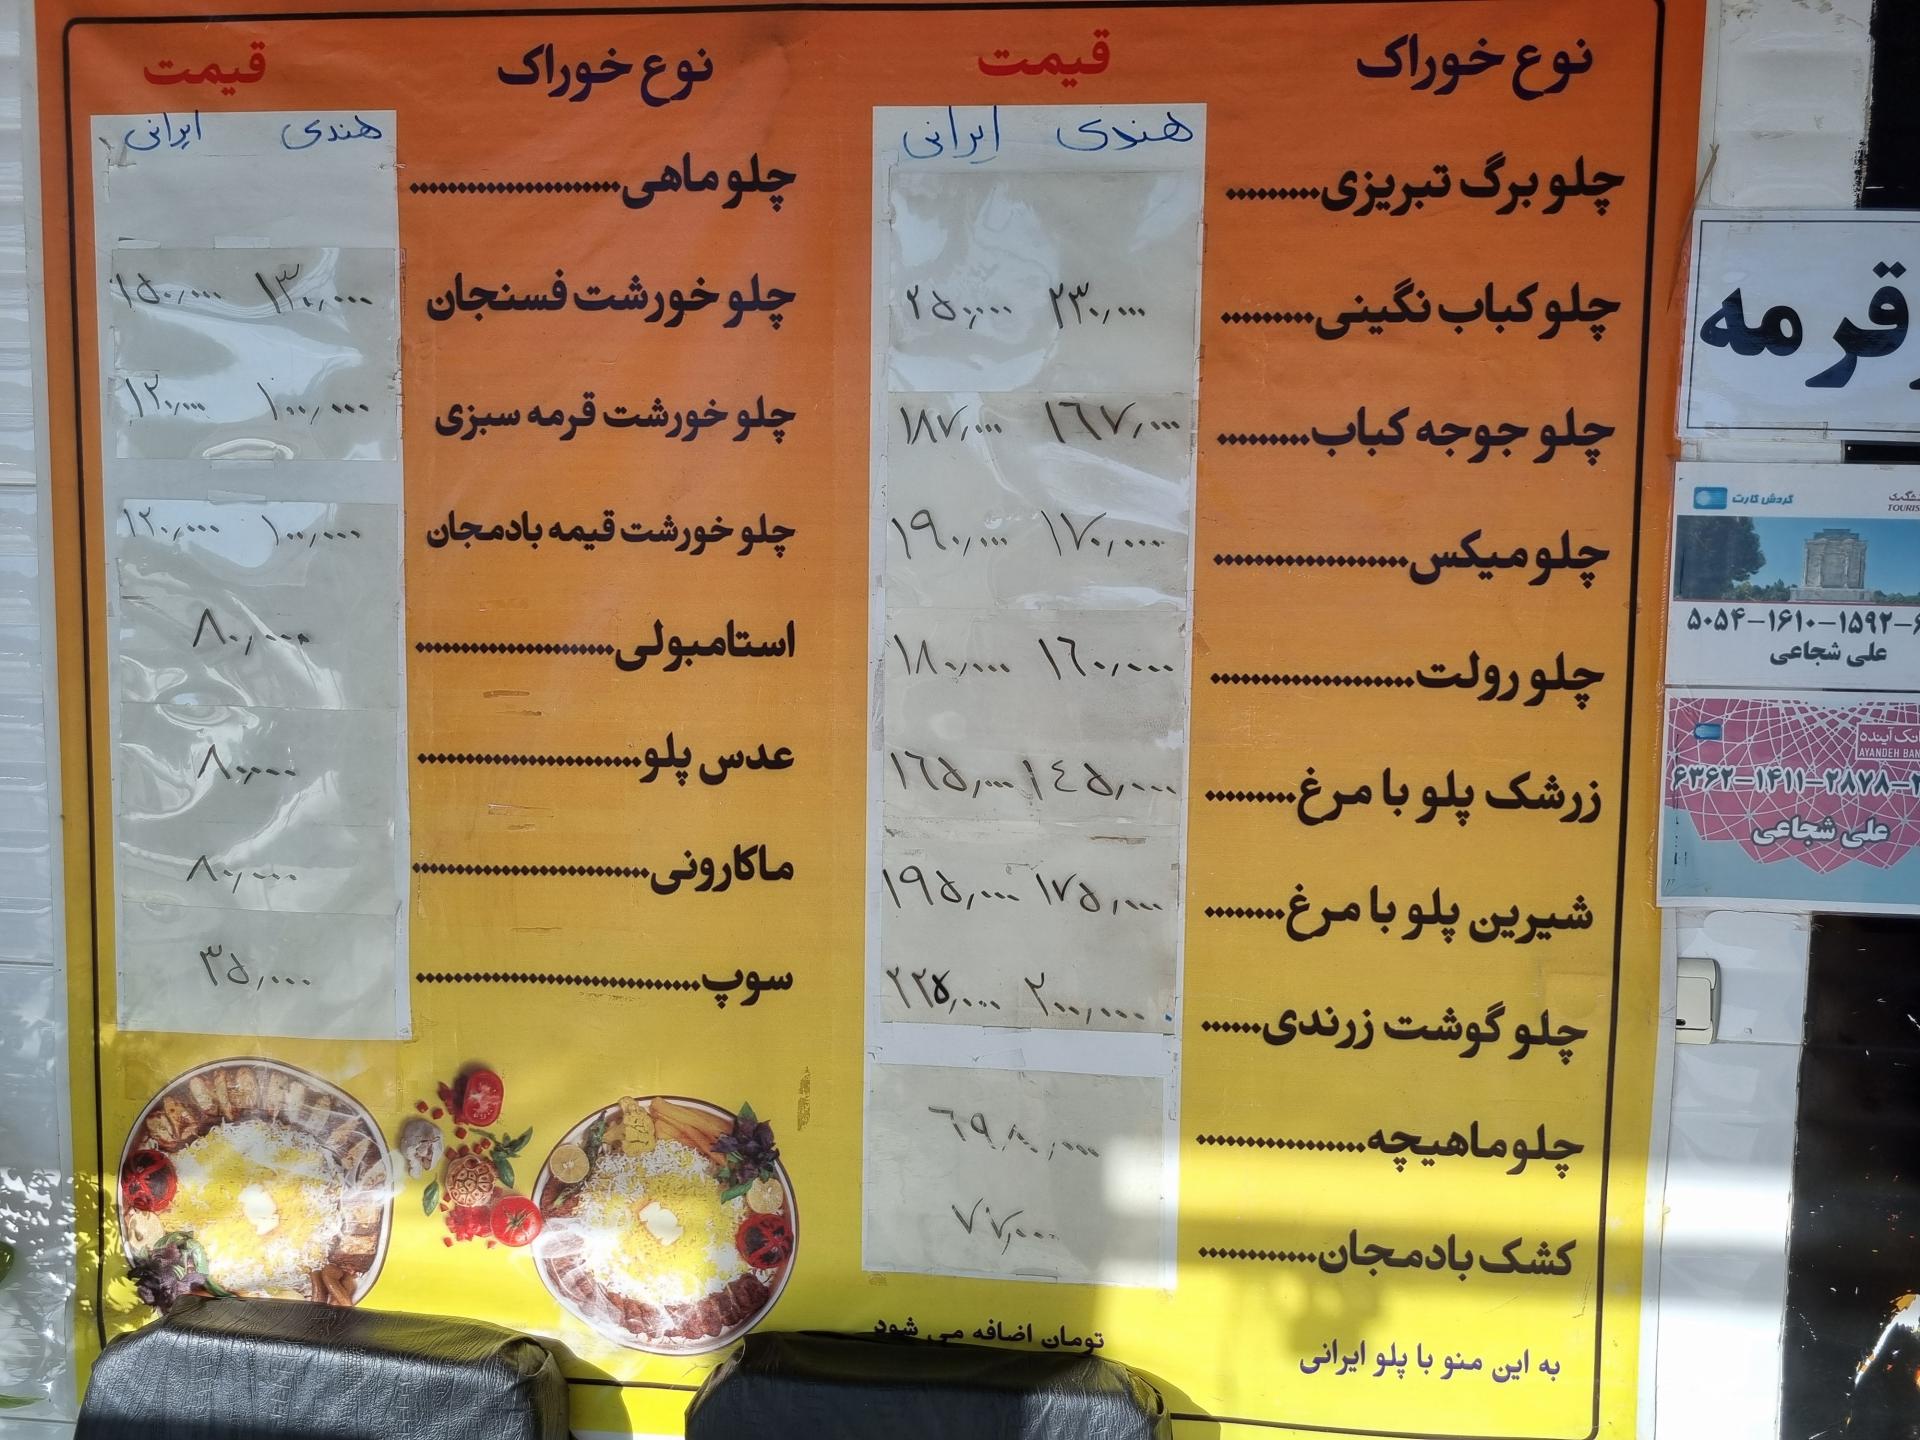 نوع خوراک قیمت
هندی ایرانی
چلو برگ تبریزی..........
چلو کباب نگینی.......... ۲۳۰,۰۰۰ ۲۵۰,۰۰۰
چلو جوجه کباب.......... ۱۶۷,۰۰۰ ۱۸۷,۰۰۰
چلو میکس..................... ۱۷۰,۰۰۰ ۱۹۰,۰۰۰
چلو رولت...................... ۱۶۰,۰۰۰ ۱۸۰,۰۰۰
زرشک پلو با مرغ.......... ۱۴۵,۰۰۰ ۱۶۵,۰۰۰
شیرین پلو با مرغ......... ۱۷۵,۰۰۰ ۱۹۵,۰۰۰
چلو گوشت زرندی....... ۲۰۰,۰۰۰ ۲۲۵,۰۰۰
چلو ماهیچه..................
کشک بادمجان............. ۷۷,۰۰۰
به این منو با پلو ایرانی
تومان اضافه می شود
نوع خوراک قیمت
هندی ایرانی
چلو ماهی.......................
چلو خورشت فسنجان ۱۳۰,۰۰۰ ۱۵۰,۰۰۰
چلو خورشت قرمه سبزی ۱۰۰,۰۰۰ ۱۲۰,۰۰۰
چلو خورشت قیمه بادمجان ۱۰۰,۰۰۰ ۱۲۰,۰۰۰
استامبولی...................... ۸۰,۰۰۰
عدس پلو......................... ۸۰,۰۰۰
ماکارونی.......................... ۸۰,۰۰۰
سوپ............................... ۳۵,۰۰۰
قرمه
گردش کارت
۵۰۵۴-۱۶۱۰-۱۵۹۲-۶
علی شجاعی
بانک آینده
AYANDEH BAN
۶۳۶۲-۱۴۱۱-۲۸۷۸-
علی شجاعی